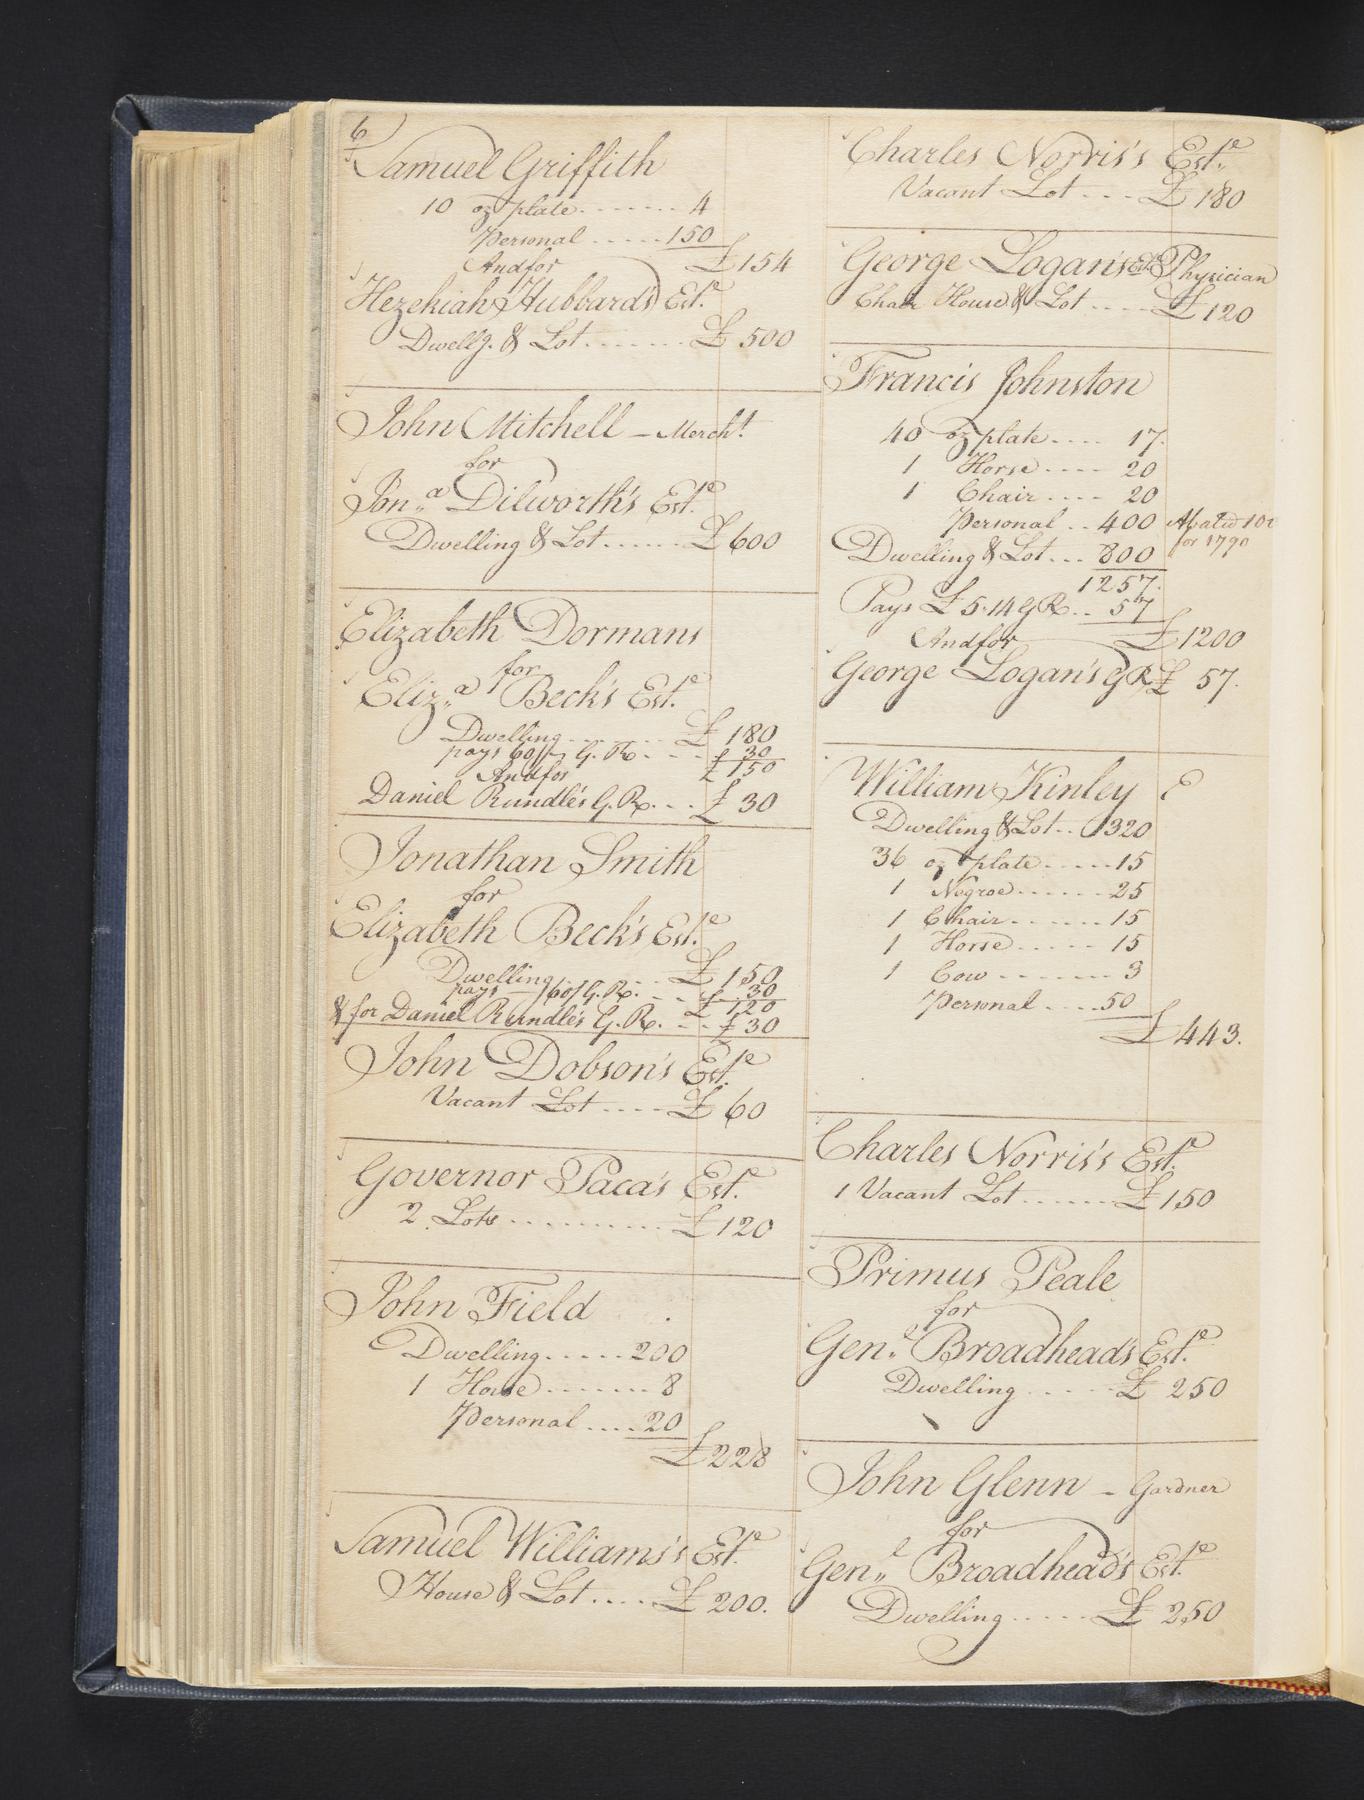 6
Samuel Griffith
10 oz plate ........ 4
Personal ..... 150
£ 154
And for
Hezekiah Hubbard's Est.e
Dwell.g & Lot ........ £ 500
John Mitchell – Mercht.
for
Jon.a Dilworth's Est.e
Dwelling & Lot ...... £ 600
Elizabeth Dormans
for
Eliz.a Beck's Est.e
Dwelling ........ £ 180
pays 60/ G.R. .... £ 30
£ 150
And for
Daniel Rundle's G.R. ... £ 30
Jonathan Smith
for
Elizabeth Beck's Est.e
Dwelling ..... £ 150
pays 60/ G.R. ... £ 30
£ 120
& for Daniel Rundle's G.R. ... £ 30
John Dobson's Est.e
Vacant Lot .... £ 60
Governor Paca's Est.e
2 Lots .......... £ 120
John Field
Dwelling ..... 200
1 Horse ........ 8
Personal .... 20
£ 228
Samuel Williams's Est.e
House & Lot .... £ 200.
Charles Norris's Est.e
Vacant Lot .... £ 180
George Logan's Est.e Physician
Chair House & Lot .... £ 120
Francis Johnston
40 oz plate .... 17.
1 Horse .... 20
1 Chair .... 20
Personal .. 400 Abated
for 1790
Dwelling & Lot ... 800
1257.
Pays £ 5.14 G R .. 57
£ 1200
And for
George Logan's G R £ 57.
William Kinley E
Dwelling & Lot .. 320
36 oz plate ..... 15
1 Negroe ...... 25
1 Chair ....... 15
1 Horse ..... 15
1 Cow ........ 3
Personal .... 50
£ 443.
Charles Norris's Est.e
1 Vacant Lot ...... £ 150
Primus Peale
for
Gen.l Broadhead's Est.e
Dwelling ...... £ 250
John Glenn – Gardner
for
Gen.l Broadhead's Est.e
Dwelling ..... £ 250